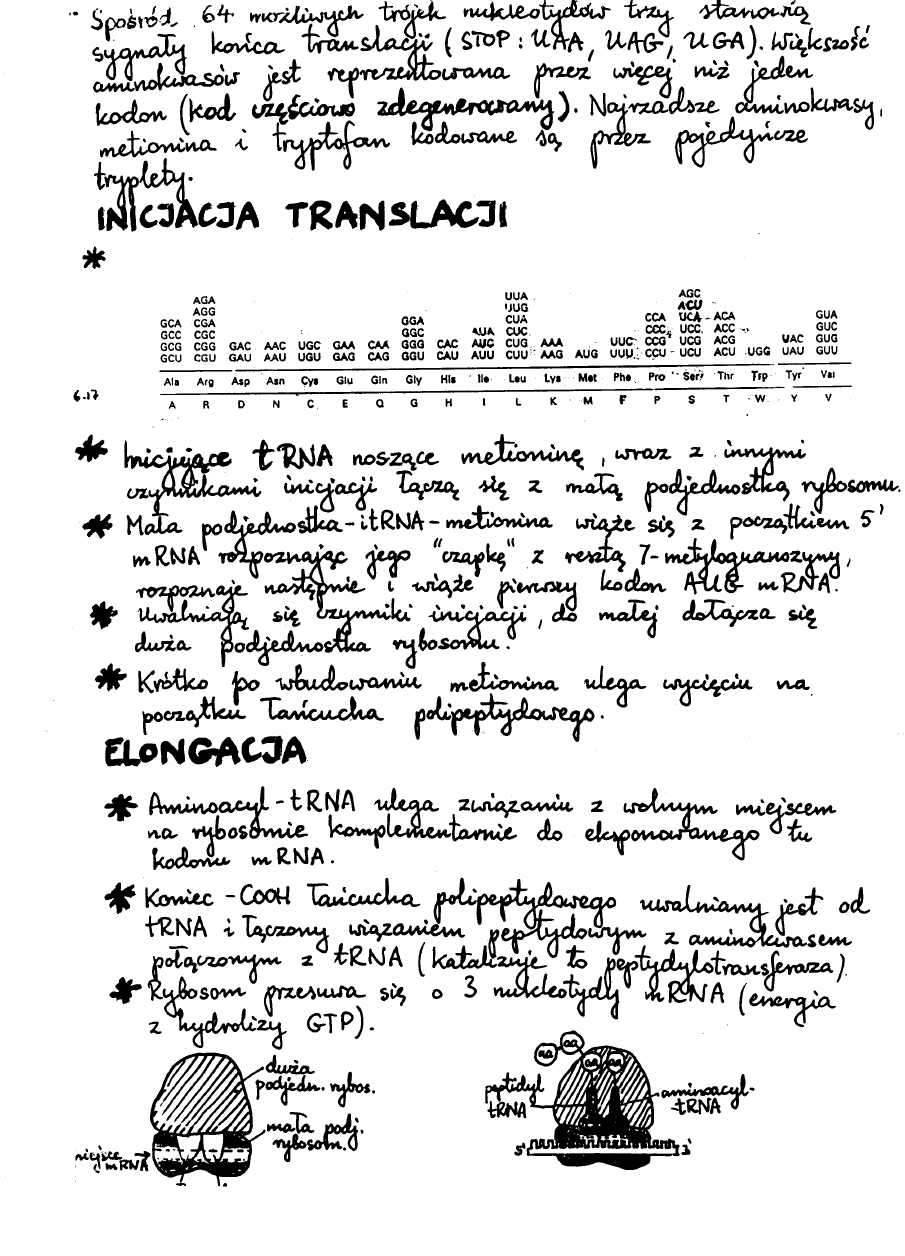 Spośród 64 możliwych trójek nukleotydów trzy stanowią
sygnały końca translacji (STOP: UAA, UAG, UGA). Większość
aminokwasów jest reprezentowana przez więcej niż jeden
kodon (kod częściowo zdegenerowany). Najrzadsze aminokwasy,
metionina i tryptofan kodowane są przez pojedyńcze
tryplety.
INICJACJA TRANSLACJI
*
UUA AGC
AGA UUG ACU
AGG CUA CCA UCA ACA GUA
GCA CGA GGA AUA CUC CCC UCC ACC GUC
GCC CGC GGC AUC CUG AAA UUC CCG UCG ACG UAC GUG
GCG CGG GAC AAC UGC GAA CAA GGG CAC AUU CUU AAG AUG UUU CCU UCU ACU UGG UAU GUU
GCU CGU GAU AAU UGU GAG CAG GGU CAU
Ala Arg Asp Asn Cys Glu Gln Gly His Ile Leu Lys Met Phe Pro Ser Thr Trp Tyr Val
6.17 A R D N C E Q G H I L K M F P S T W Y V
* Inicjujące tRNA noszące metioninę, wraz z innymi
czynnikami inicjacji łączą się z małą podjednostką rybosomu.
* Mała podjednostka-itRNA-metionina wiąże się z początkiem 5'
mRNA rozpoznając jego "czapkę" z resztą 7-metyloguanozyny,
rozpoznaje następnie i wiąże pierwszy kodon AUG mRNA.
* Uwalniają się czynniki inicjacji, do małej dołącza się
duża podjednostka rybosomu.
* Krótko po wbudowaniu metionina ulega wycięciu na
początku łańcucha polipeptydowego.
ELONGACJA
* Aminoacyl-tRNA ulega związaniu z wolnym miejscem
na rybosomie komplementarnie do eksponowanego tu
kodonu mRNA.
* Koniec -COOH łańcucha polipeptydowego uwalniany jest od
tRNA i łączony wiązaniem peptydowym z aminokwasem
połączonym z tRNA (katalizuje to peptydylotransferaza)
* Rybosom przesuwa się o 3 nukleotydy mRNA (energia
z hydrolizy GTP).
duża
podjedn. rybos.
mała podj.
rybosom.
mRNA
aa aa aa aa
peptidyl
tRNA
aminoacyl-
-tRNA
5' 3'